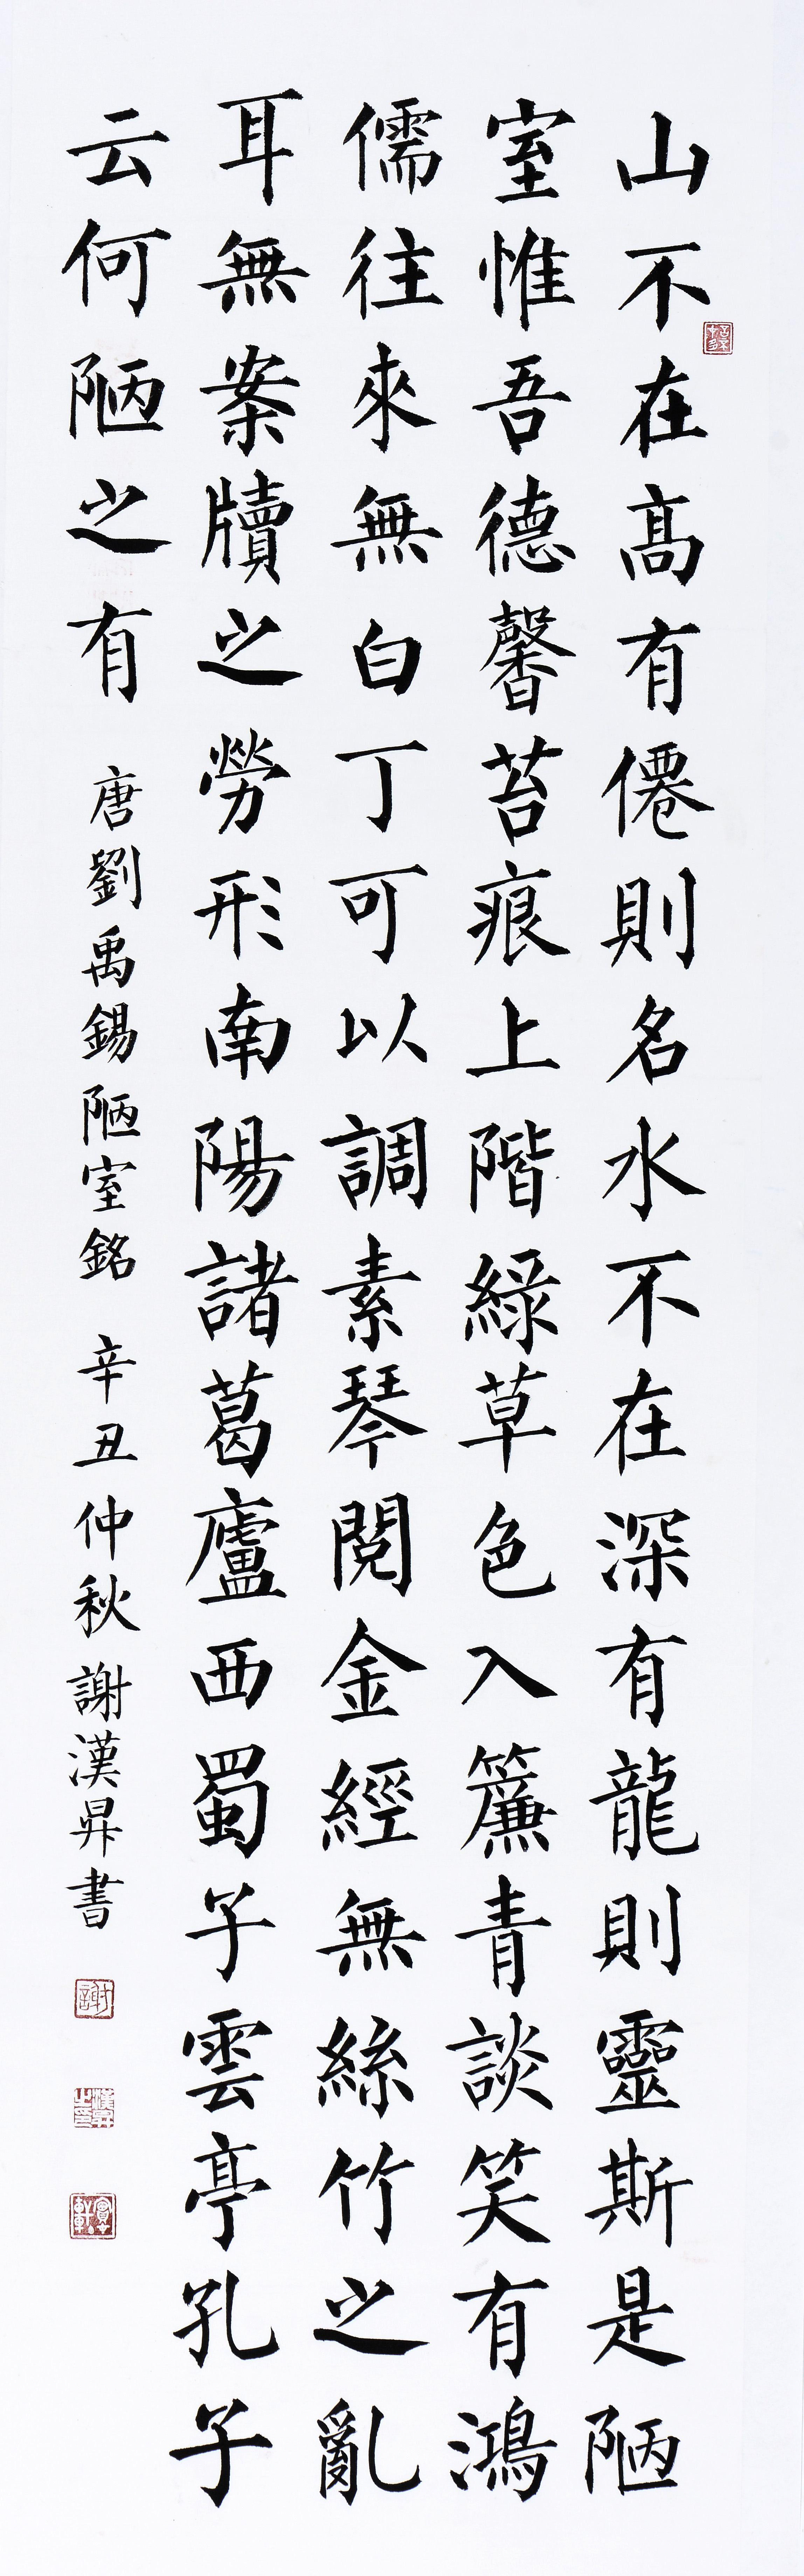 山不在高有僊則名水不在深有龍則靈斯是陋
室惟吾德馨苔痕上階綠草色入簾青談笑有鴻
儒往來無白丁可以調素琴閱金經無絲竹之亂
耳無案牘之勞形南陽諸葛廬西蜀子雲亭孔子
云何陋之有 唐劉禹錫陋室銘 辛丑仲秋謝漢昇書
謝
漢昇之印